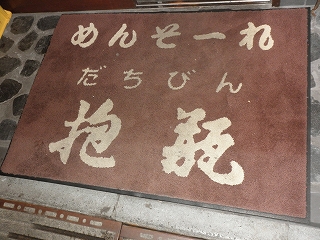 めんそーれ
だちびん
抱瓶